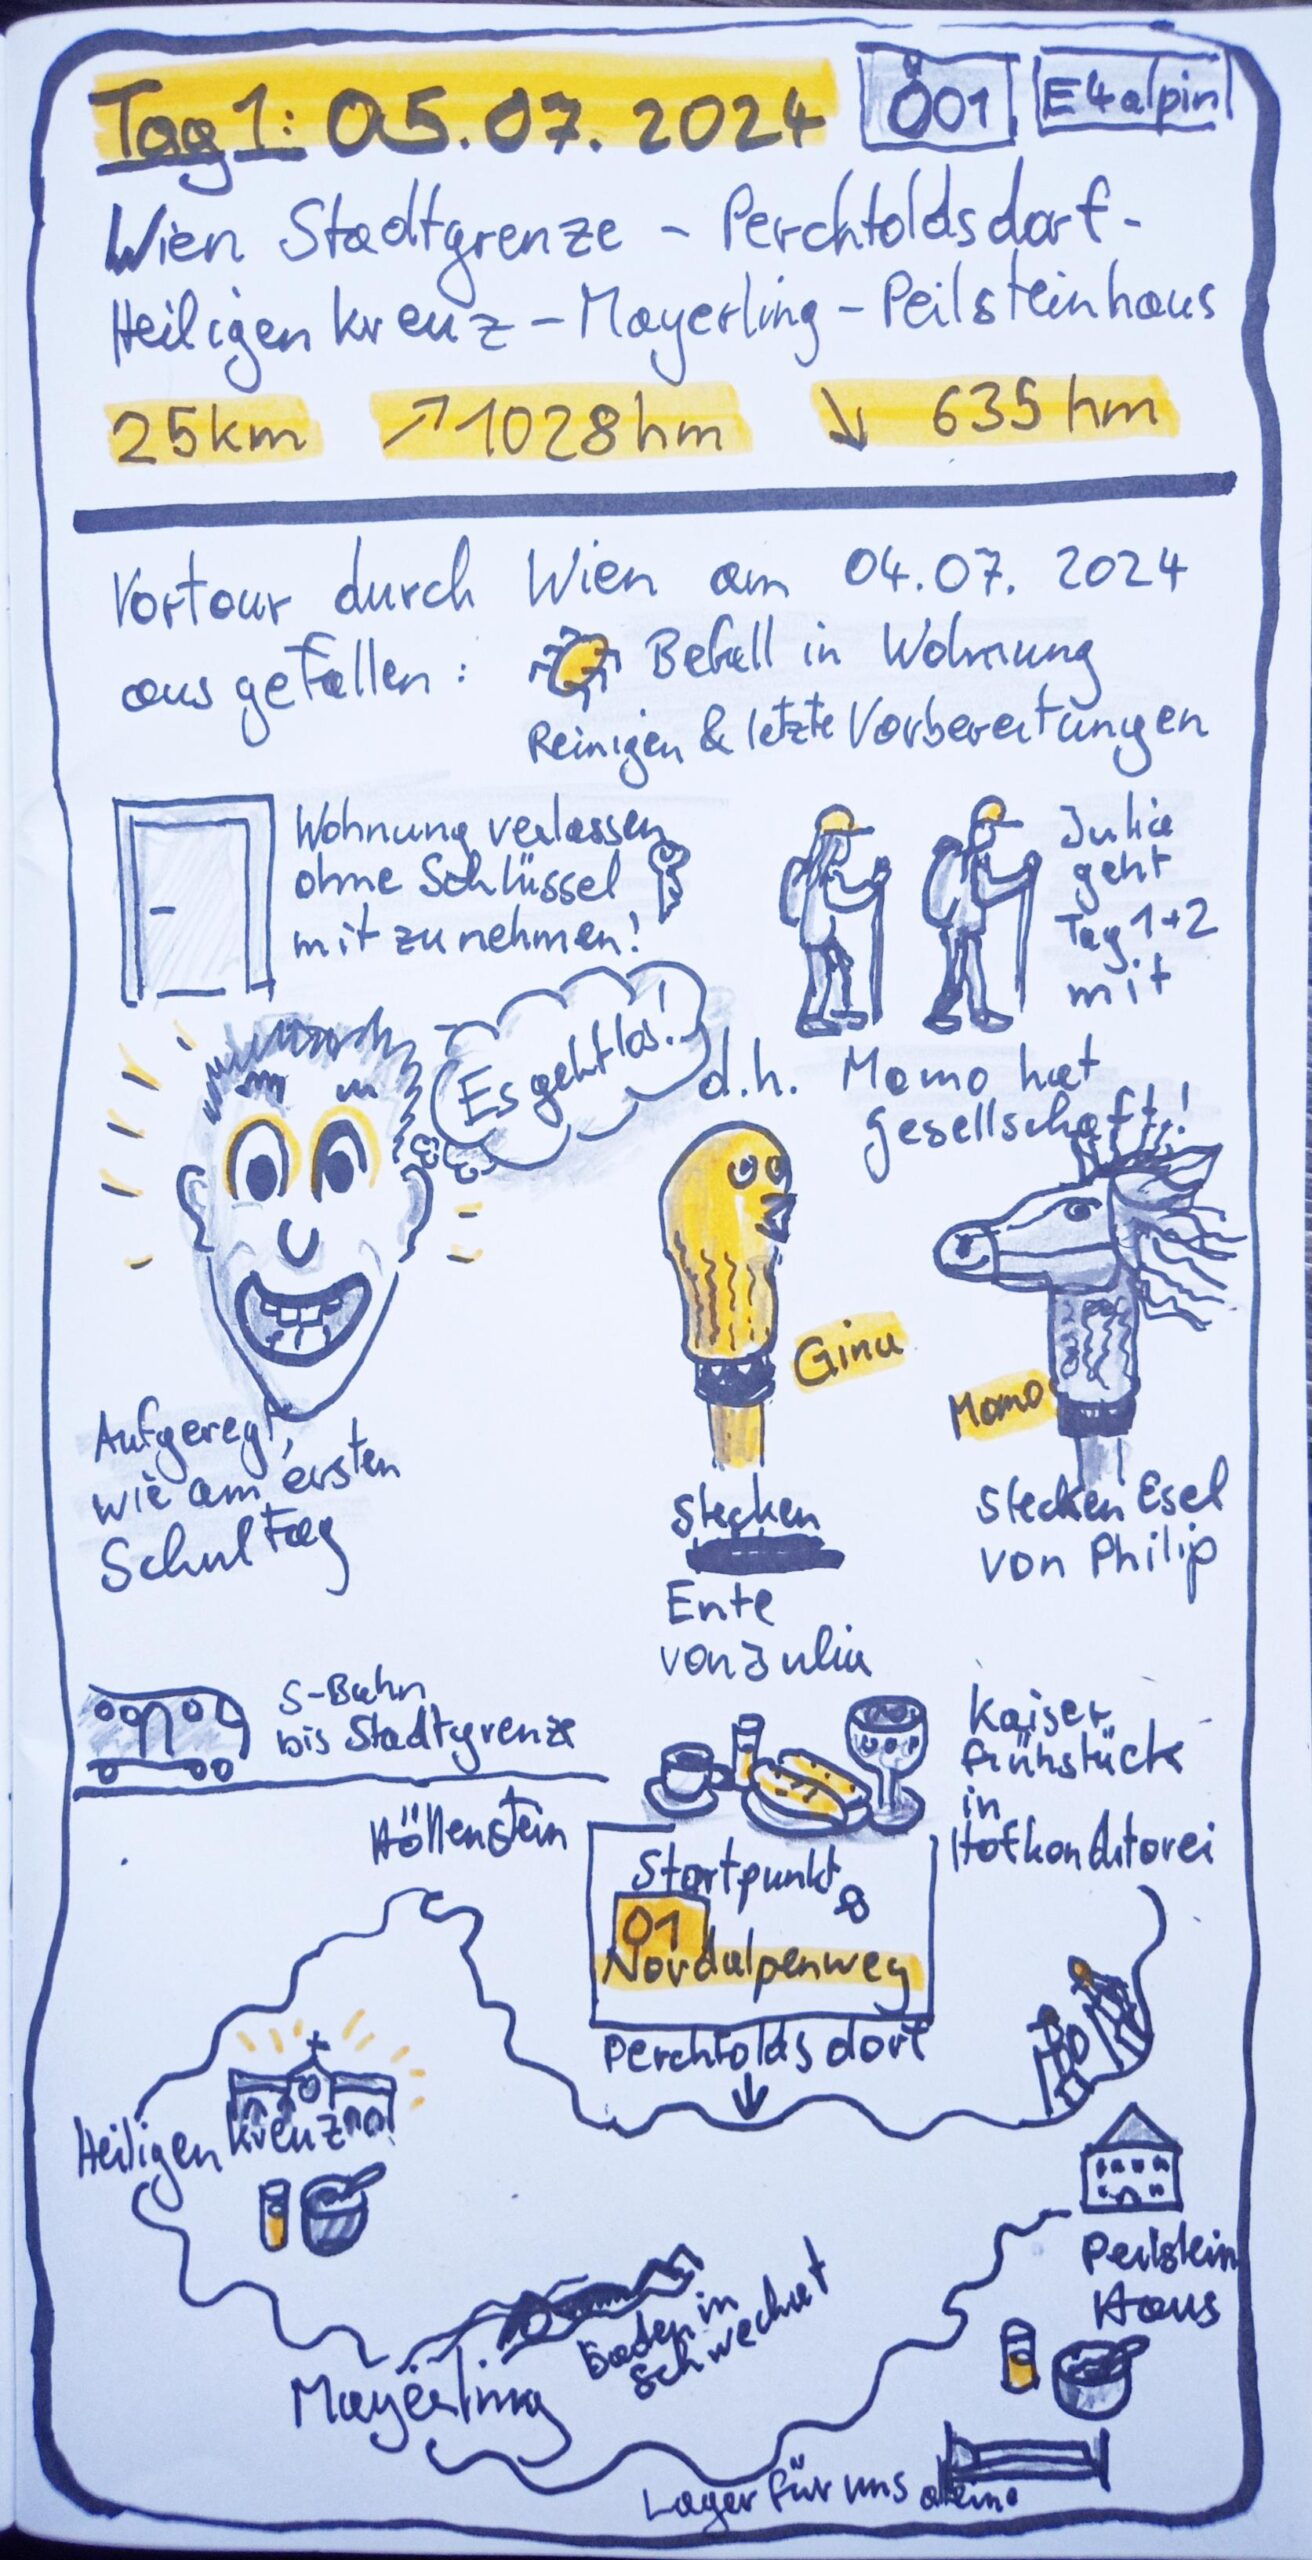 Tag 1: 05.07.2024
Ö01
E4alpin
Wien Stadtgrenze - Perchtoldsdorf -
Heiligenkreuz - Mayerling - Peilsteinhaus
25km ↗1028hm ↘ 635hm
Vortour durch Wien am 04.07.2024
ausgefallen: Befall in Wohnung
Reinigen & letzte Vorbereitungen
Wohnung verlassen
ohne Schlüssel
mitzunehmen!
Julia
geht
Tag 1+2
mit
Es geht los!
d.h. Momo hat
Gesellschaft!
Aufgeregt,
wie am ersten
Schultag
Gina
Stecken
Ente
von Julia
Momo
Stecken Esel
von Philip
S-Bahn
bis Stadtgrenze
Kaiser
frühstück
in
Hofkonditorei
Höllenstein
Startpunkt
01
Nordalpenweg
Perchtoldsdorf
Heiligenkreuz
Mayerling
Baden in
Schwechat
Peilstein
Haus
Lager für uns alleine